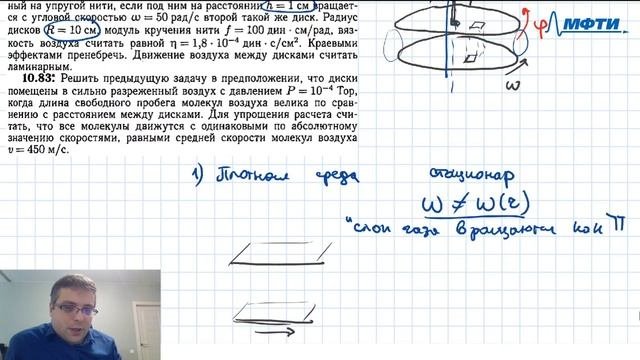 ный на упругой нити, если под ним на расстоянии h = 1 см вращает-
ся с угловой скоростью ω = 50 рад/с второй такой же диск. Радиус
дисков R = 10 см, модуль кручения нити f = 100 дин · см/рад, вяз-
кость воздуха считать равной η = 1,8 · 10⁻⁴ дин · с/см². Краевыми
эффектами пренебречь. Движение воздуха между дисками считать
ламинарным.
10.83. Решить предыдущую задачу в предположении, что диски
помещены в сильно разреженный воздух с давлением P = 10⁻⁴ Тор,
когда длина свободного пробега молекул воздуха велика по срав-
нению с расстоянием между дисками. Для упрощения расчета счи-
тать, что все молекулы движутся с одинаковыми по абсолютному
значению скоростями, равными средней скорости молекул воздуха
v = 450 м/с.
φ
МФТИ
ω
1) Плотная среда
стационар
ω ≠ ω(r)
"слои газа вращаются как П